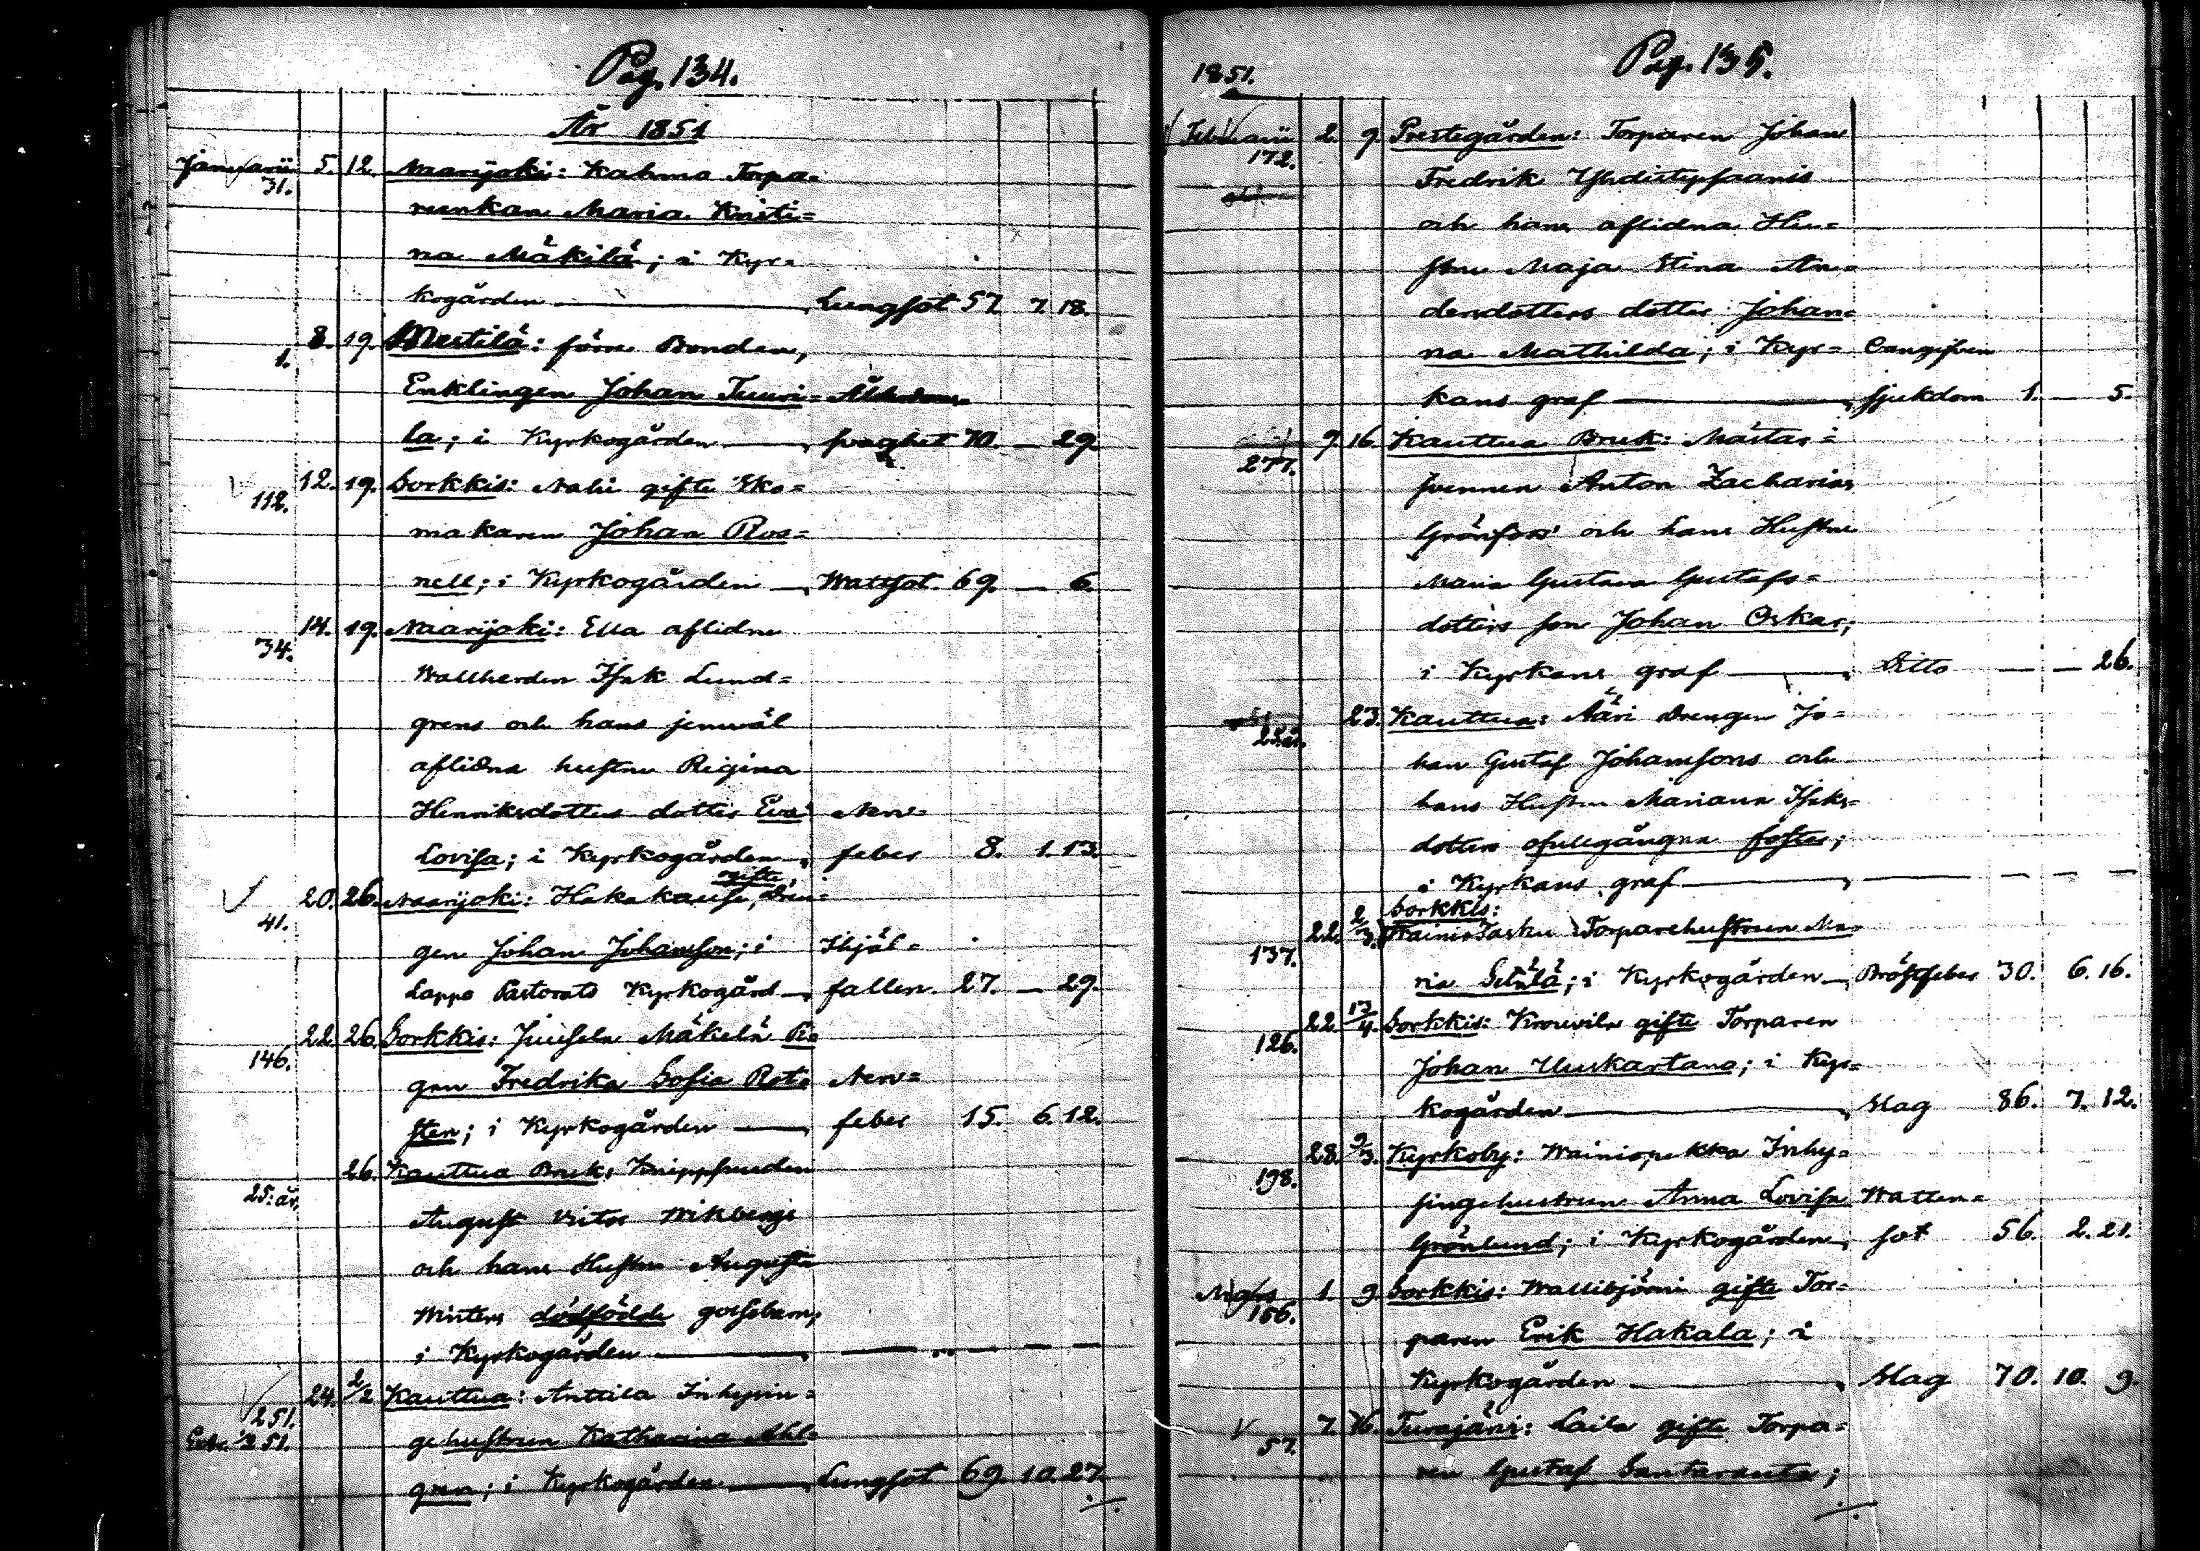 Pag. 134.
År 1851
Januarii 5. 12. Naarijoki: Kahma Torpa=
31.
reenkan Maria Kristi=
na Mäkilä; i Kyr=
kogården — Lungsot 57 7. 18.
8. 19. Mestilä: förre Bonden,
1.
Enklingen Johan Tuuri= Ålderdoms
la; i Kyrkogården — svaghet 70. — 29.
12. 19. Sorkkis: gifte Sko=
112.
makaren Johan Ros=
nell; i Kyrkogården — Wattsot. 69. — 6.
14. 19. Naarijoki: Ella aflidne
34.
Wallherden Isak Lund=
grens och hans jemwäl
aflidna hustru Regina
Henriksdotters dotter Eva Nerv=
Lovisa; i Kyrkogården — feber 8. 1. 13.
gifte
20. 26. Naarijoki: Hakakause, Drän=
41.
gen Johan Johansson; i Ihjäl=
Lappo Pastorats Kyrkogård — fallen. 27. — 29.
22. 26. Sorkkis: Juusela Mäkelä Pi=
146.
gan Fredrika Sofia Rot= Nerv=
sten; i Kyrkogården — feber 15. 6. 12.
26. Kauttua Bruk: Knippsmeden
25. år.
August Victor Wikbergs
och hans Hustru Augusta
Winters dödfödde gossebarn;
i Kyrkogården — — — —
24. 2/2 Kauttua: Anttila Inhysin=
251.
251. gehustrun Katharina Ahl=
gren; i Kyrkogården — Lungsot 69 10. 27.
Pag. 135.
1851.
Februarii 2. 9. Prestegården: Torparen Johan
172.
Fredrik Yhdistyssaaris
och hans aflidna Hu=
stru Maja Stina An=
dersdotters dotter Johan=
na Mathilda; i Kyr= Oangifven
kans graf — sjukdom 1. — 5.
9. 16. Kauttua Bruk: Mästar=
277.
svennen Anton Zacharias
Grönfors och hans Hustru
Maria Gustava Gustafs=
dotters son Johan Oskar;
i Kyrkans graf — Ditto — — 26.
23. Kauttua: Ääri Drengen Jo=
25. år.
han Gustaf Johanssons och
hans Hustru Mariana Isaks=
dotters ofullgångna foster;
i Kyrkans graf — — — —
Sorkkis:
22. 2/3. Wainio Tasku Torparehustrun Ma=
137.
ria Setälä; i Kyrkogården — Bröstfeber 30. 6. 16.
22. 13/4. Sorkkis: Krouvila gifte Torparen
126.
Johan Uuskartano; i Kyr=
kogården — Slag 86. 7. 12.
28. 9/3. Kyrkoby: Wainiopekka Inhy=
198.
singehustrun Anna Lovisa Watten=
Grönlund; i Kyrkogården — sot 56. 2. 21.
1. 9. Sorkkis: Wallibjörni gifte Tor=
156.
paren Erik Hakala; i
Kyrkogården — Slag 70. 10. 9.
7. 16. Turajärvi: Laila gifte Torpa=
57.
ren Gustaf Santaranta;